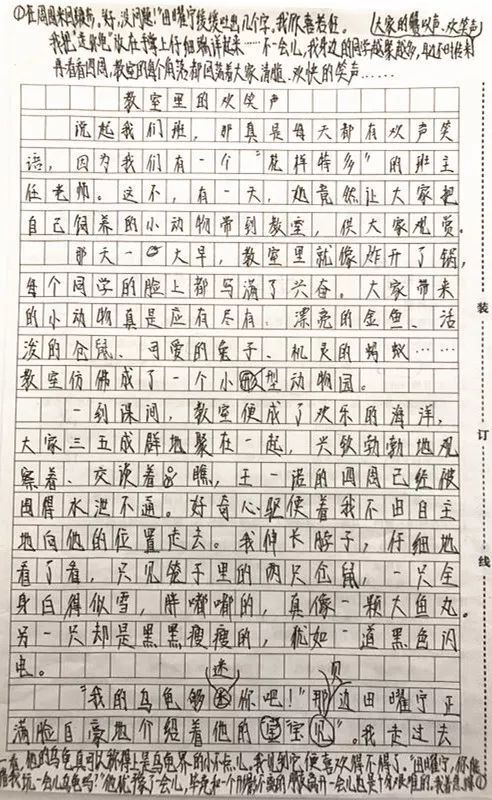 ①在周围来回踱步,好,没问题!"田曜宁缓缓吐出几个字。我欣喜若狂。
(大家的蟹以声、欢笑声)
我把"迷你龟"放在手掌上仔细端详起来……不一会儿,我身边的同学越聚越多,
再看看四周,教室的每个角落都回荡着大家清脆、欢快的笑声……
教室里的欢笑声
说起我们班,那真是每天都有欢声笑
语,因为我们有一个"花样特多"的班主
任老师。这不,有一天,她竟然让大家把
自己饲养的小动物带到教室,供大家观赏。
那天一大早,教室里就像炸开了锅,
每个同学的脸上都写满了兴奋。大家带来
的小动物真是应有尽有:漂亮的金鱼、活
泼的仓鼠、可爱的兔子、机灵的蚂蚁……
教室仿佛成了一个小型动物园。
一到课间,教室便成了欢乐的海洋,
大家三五成群地聚在一起,兴致勃勃地观
察着、交谈着。瞧,王一诺的四周已经被
围得水泄不通。好奇心驱使着我不由自主
地向他的位置走去。我伸长脖子,仔细地
看了看,只见笼子里的两只仓鼠,一只全
身白得似雪,胖嘟嘟的,真像一颗大鱼丸。
另一只却是黑黑瘦瘦的,犹如一道黑色闪
电。
迷 贝
"我的乌龟够迷你吧!"那边田曜宁正
满脸自豪地介绍着他的宝贝。我走过去
一看,他的乌龟真可以称得上是乌龟界的小不点儿。我见到它便喜欢得不得了。"田曜宁,你能
借我玩一会儿乌龟吗?"他犹豫了一会儿,毕竟和一个形影不离的朋友离开一会儿也是十分艰难的。我着急地①
装
订
线